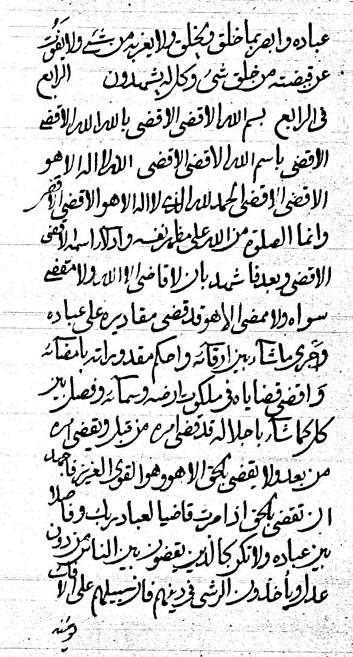 عباده وابصر بما خلق ويخلق ولا يعزب من شئ ولا يفوت
عن قبضته من خلق شئ وكل له يشهدون الرابع
فى الرابع بسم الله الاقضى الاقضى بالله الله الاقضى
الاقضى باسم الله الاقضى الاقضى الله لا اله الا هو
الاقضى الاقضى الحمد لله الذى لا اله الا هو الاقضى الاقضى
وانما الصلوة من الله على مظهر نفسه وادلاء اسمه الاقضى
الاقضى وبعد فاشهد بان لا قاضى الا الله ولا مقضى
سواه ولا ممضى الا هو قد قضى مقاديره على عباده
وجرى ماشاء بين اوقاته واحكم مقدوراته بامضائه
واقضى قضاياه فى ملكوت ارضه وسمائه وفصل بين
كل كما شاء باجلاله قد قضى امره من قبل ويقضى امره
من بعد ولا يقضى بالحق الا هو وهو القوى العزيز فاجهد
ان تقضى بالحق اذا صرت قاضيا لعباد ربك وفاصلا
بين عباده ولا تكن كالذين يقضون بين الناس من دون
عدل ويأخذون الرشى فى دينهم فان سبيلهم على الافك